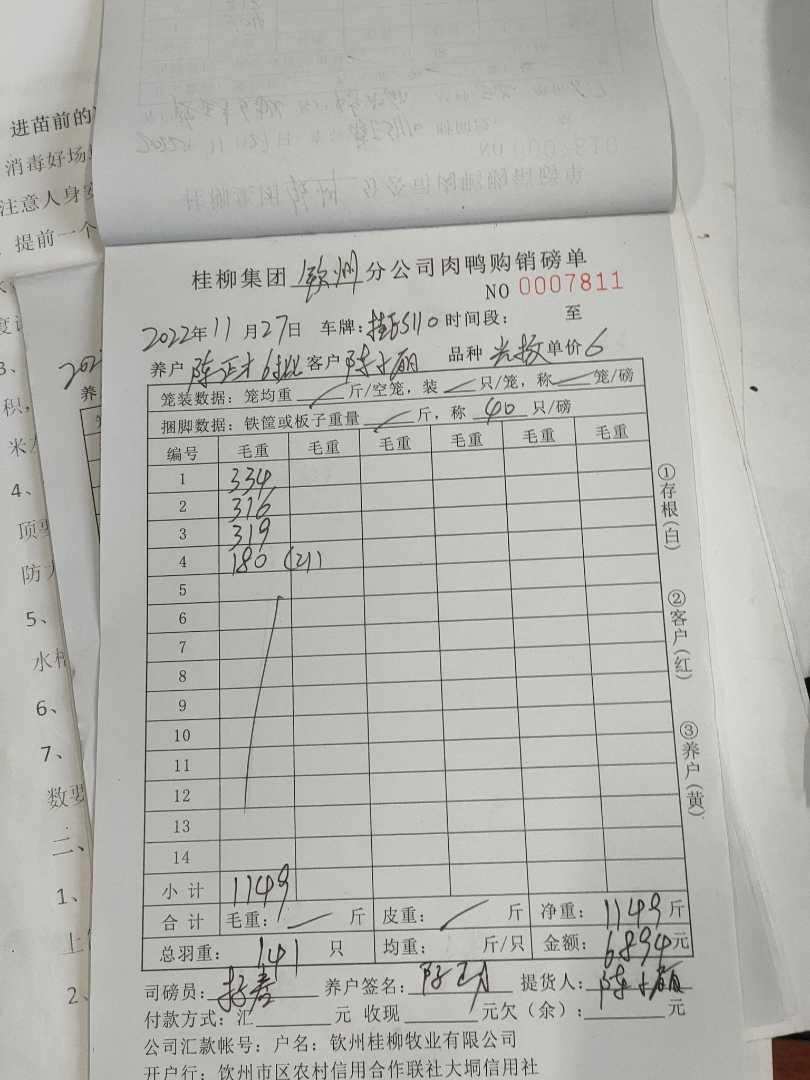 进苗前的
消毒好场
注意人身安
提前一个
度
3、
积,
米
4、
顶
防
5、
水
6、
7、
数要
二、
1、
上
2、
202
养
桂柳集团 钦州 分公司肉鸭购销磅单
NO 0007811
2022年11月27日 车牌: 时间段: 至
养户 陈正才 客户 陈小丽 品种 单价 6
笼装数据: 笼均重 斤/空笼, 装 只/笼, 称 笼/磅
捆脚数据: 铁筐或板子重量 斤, 称 40 只/磅
编号 毛重 毛重 毛重 毛重 毛重 毛重
1 334
2 316
3 319
4 180 (21)
5
6
7
8
9
10
11
12
13
14
小计 1149
合计 毛重: 斤 皮重: 斤 净重: 1149 斤
总羽重: 141 只 均重: 斤/只 金额: 6894 元
司磅员: 养户签名: 提货人: 陈小丽
付款方式: 汇 元 收现 元欠(余): 元
公司汇款帐号: 户名: 钦州桂柳牧业有限公司
开户行: 钦州市区农村信用合作联社大垌信用社
①存根(白)
②客户(红)
③养户(黄)